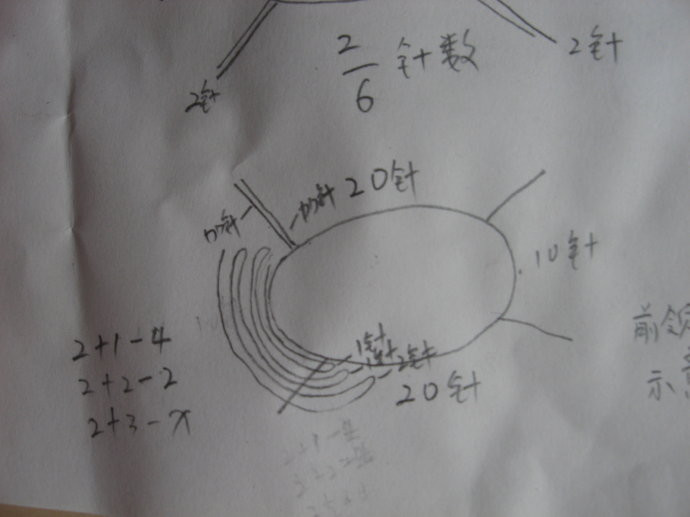 2针
2/6 针数
2针
20针
10针
前领
示意
1针
1针
2针
20针
2+1-4
2+2-2
2+3-x